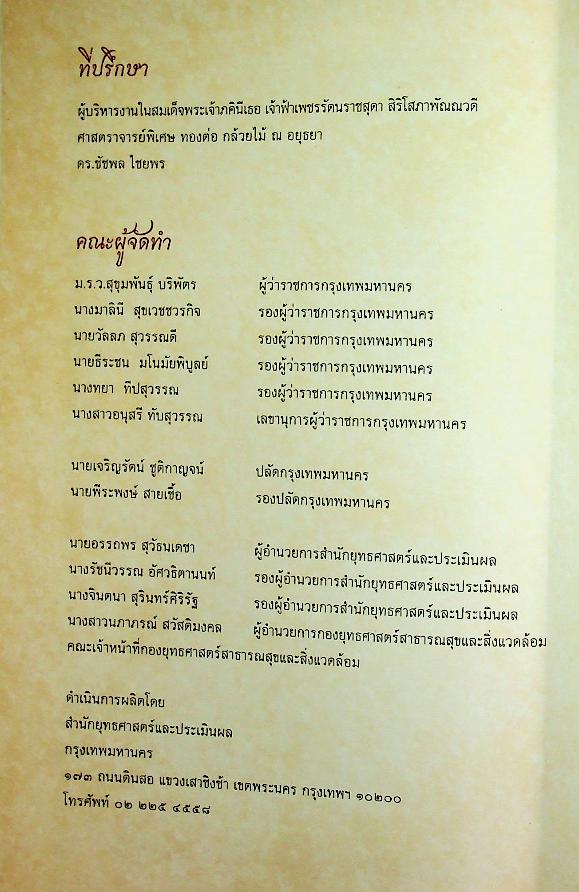 ที่ปรึกษา
ผู้บริหารงานในสมเด็จพระเจ้าภคินีเธอ เจ้าฟ้าเพชรรัตนราชสุดา สิริโสภาพัณณวดี
ศาสตราจารย์พิเศษ ทองต่อ กล้วยไม้ ณ อยุธยา
ดร.ชัชพล ไชยพร
คณะผู้จัดทำ
ม.ร.ว.สุขุมพันธุ์ บริพัตร ผู้ว่าราชการกรุงเทพมหานคร
นางมาลินี สุขเวชชวรกิจ รองผู้ว่าราชการกรุงเทพมหานคร
นายวัลลภ สุวรรณดี รองผู้ว่าราชการกรุงเทพมหานคร
นายธีระชน มโนมัยพิบูลย์ รองผู้ว่าราชการกรุงเทพมหานคร
นางทยา ทีปสุวรรณ รองผู้ว่าราชการกรุงเทพมหานคร
นางสาวอนุสรี ทับสุวรรณ เลขานุการผู้ว่าราชการกรุงเทพมหานคร
นายเจริญรัตน์ ชูติกาญจน์ ปลัดกรุงเทพมหานคร
นายพีระพงษ์ สายเชื้อ รองปลัดกรุงเทพมหานคร
นายอรรถพร สุวัธนเดชา ผู้อำนวยการสำนักยุทธศาสตร์และประเมินผล
นางรัชนีวรรณ อัศวธิตานนท์ รองผู้อำนวยการสำนักยุทธศาสตร์และประเมินผล
นางจินตนา สุรินทร์ศิริรัฐ รองผู้อำนวยการสำนักยุทธศาสตร์และประเมินผล
นางสาวนภาภรณ์ สวัสดิมงคล ผู้อำนวยการกองยุทธศาสตร์สาธารณสุขและสิ่งแวดล้อม
คณะเจ้าหน้าที่กองยุทธศาสตร์สาธารณสุขและสิ่งแวดล้อม
ดำเนินการผลิตโดย
สำนักยุทธศาสตร์และประเมินผล
กรุงเทพมหานคร
๑๗๓ ถนนดินสอ แขวงเสาชิงช้า เขตพระนคร กรุงเทพฯ ๑๐๒๐๐
โทรศัพท์ ๐๒ ๒๒๕ ๔๕๕๘